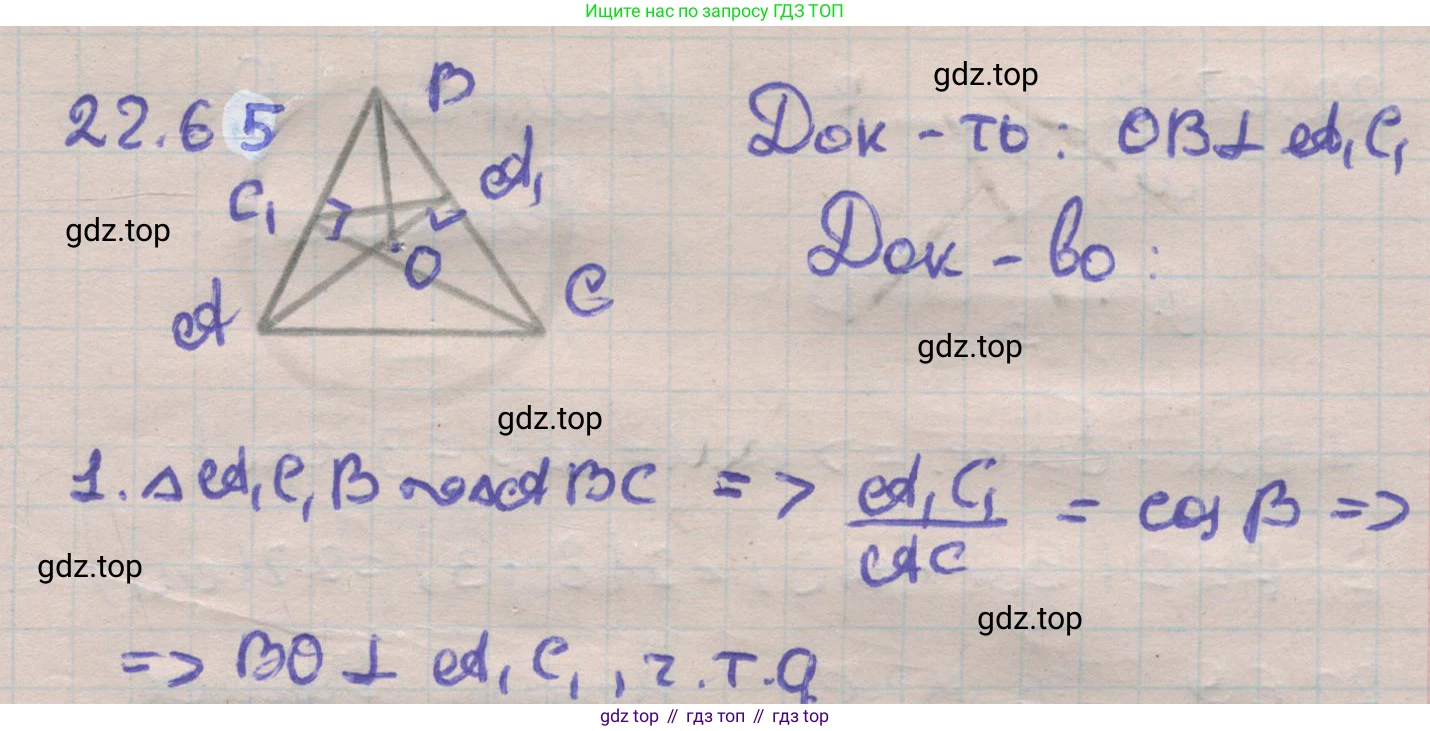 Ищите нас по запросу ГДЗ ТОП
22.65
B
C₁
A₁
O
A
C
gdz.top
Док-ть: OB⊥A₁C₁
gdz.top
Док-во:
gdz.top
gdz.top
1. △A₁C₁B ~ △ABC => A₁C₁/AC = cos B =>
gdz.top
gdz.top
=> BO ⊥ A₁C₁, ч.т.д
gdz top // гдз топ // gdz top